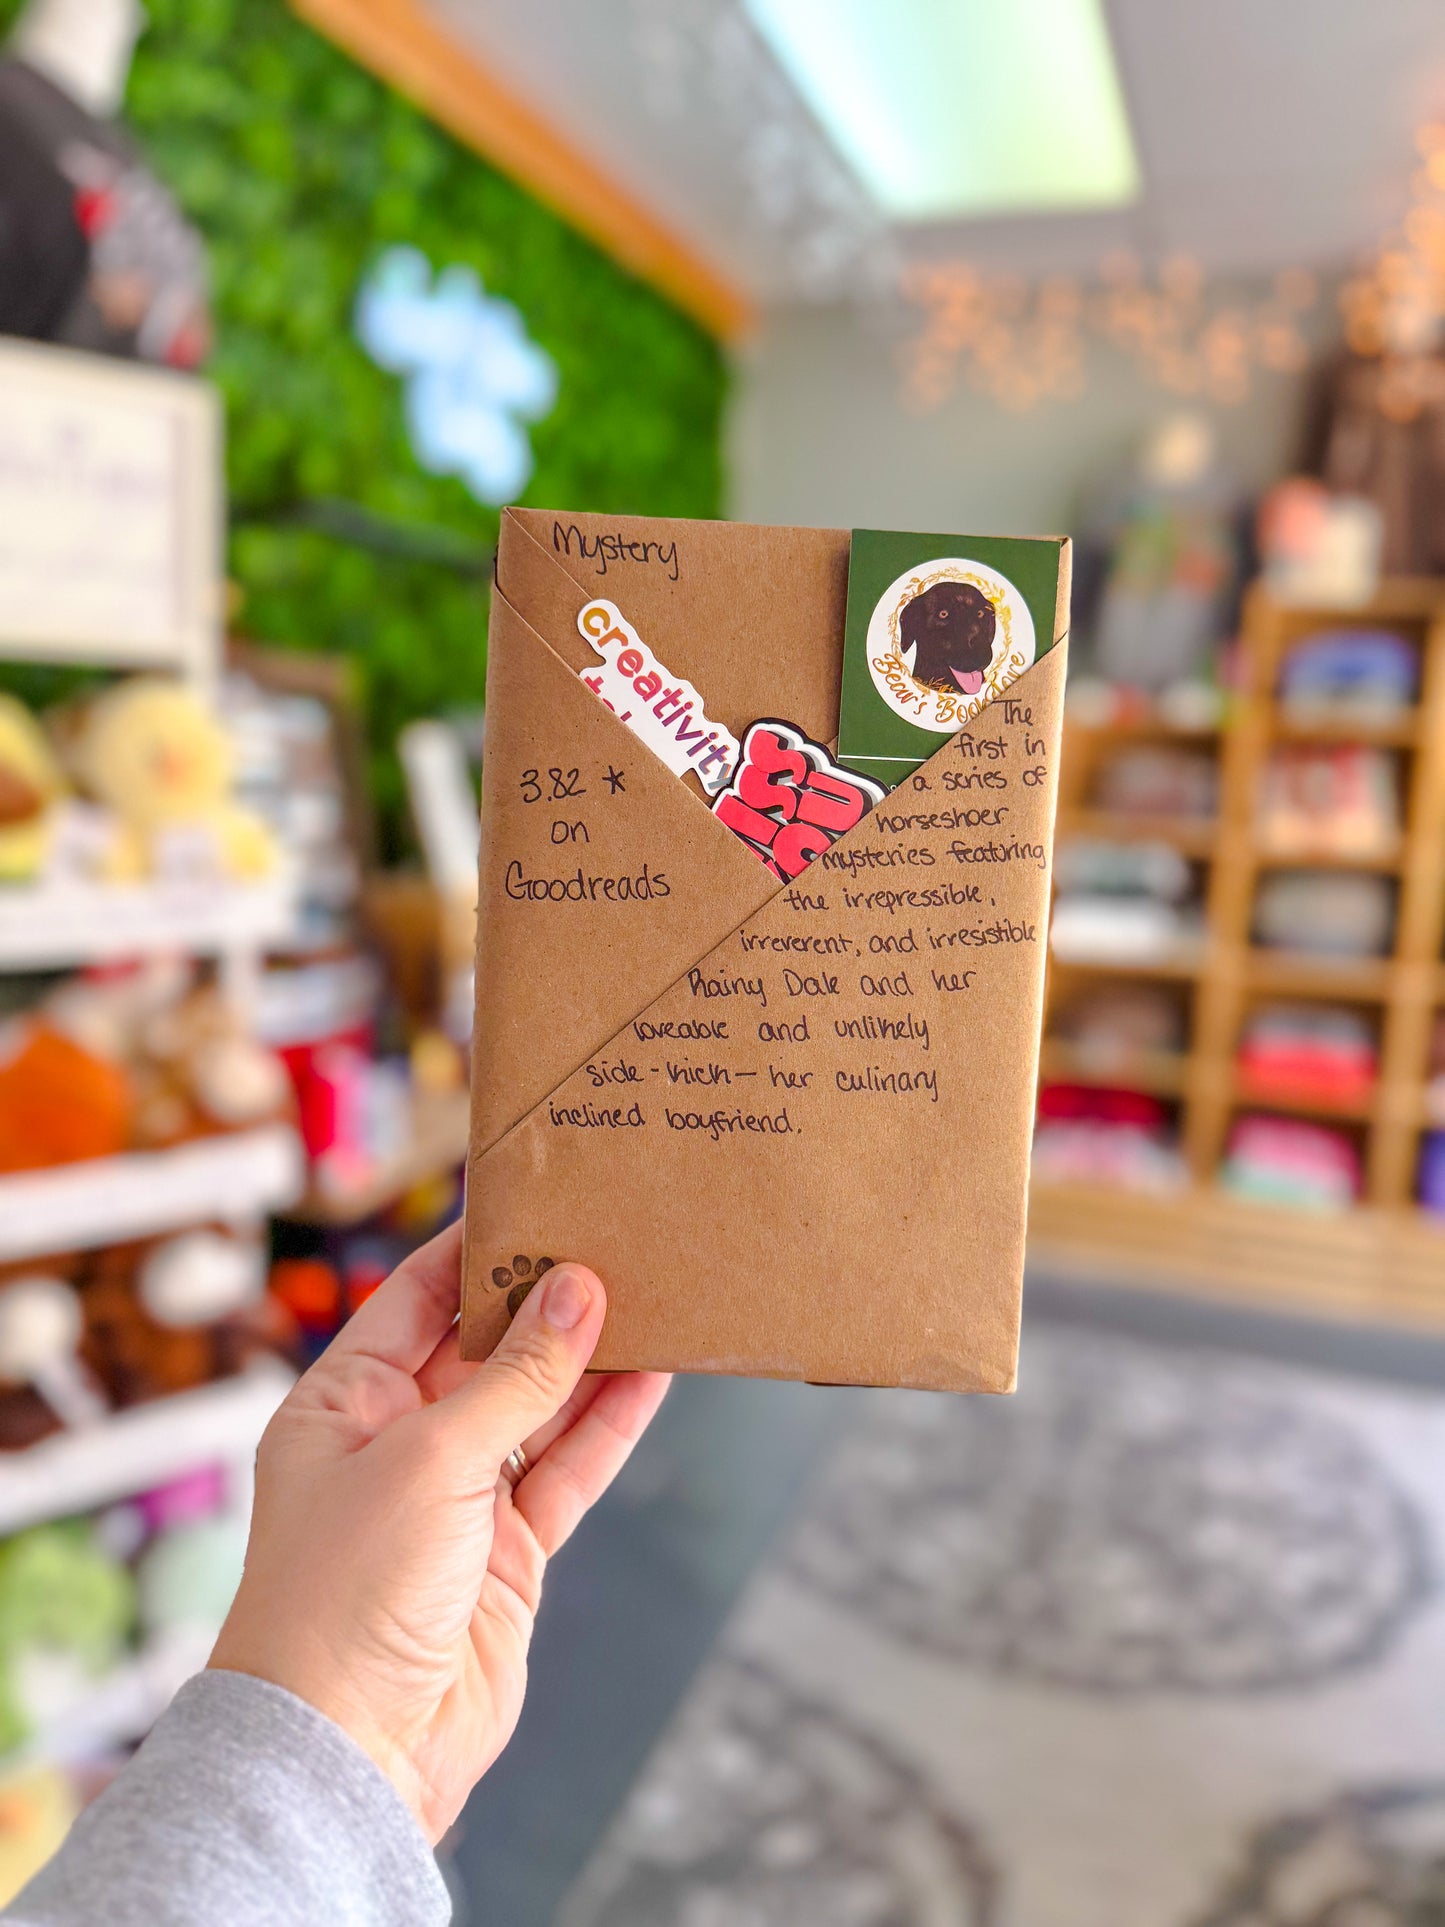 Mystery
creativity
Bear's Book
3.82 *
on
Goodreads
The
first in
a series of
horseshoer
mysteries featuring
the irrepressible,
irreverent, and irresistible
Rainy Dale and her
loveable and unlikely
side-kick— her culinary
inclined boyfriend.